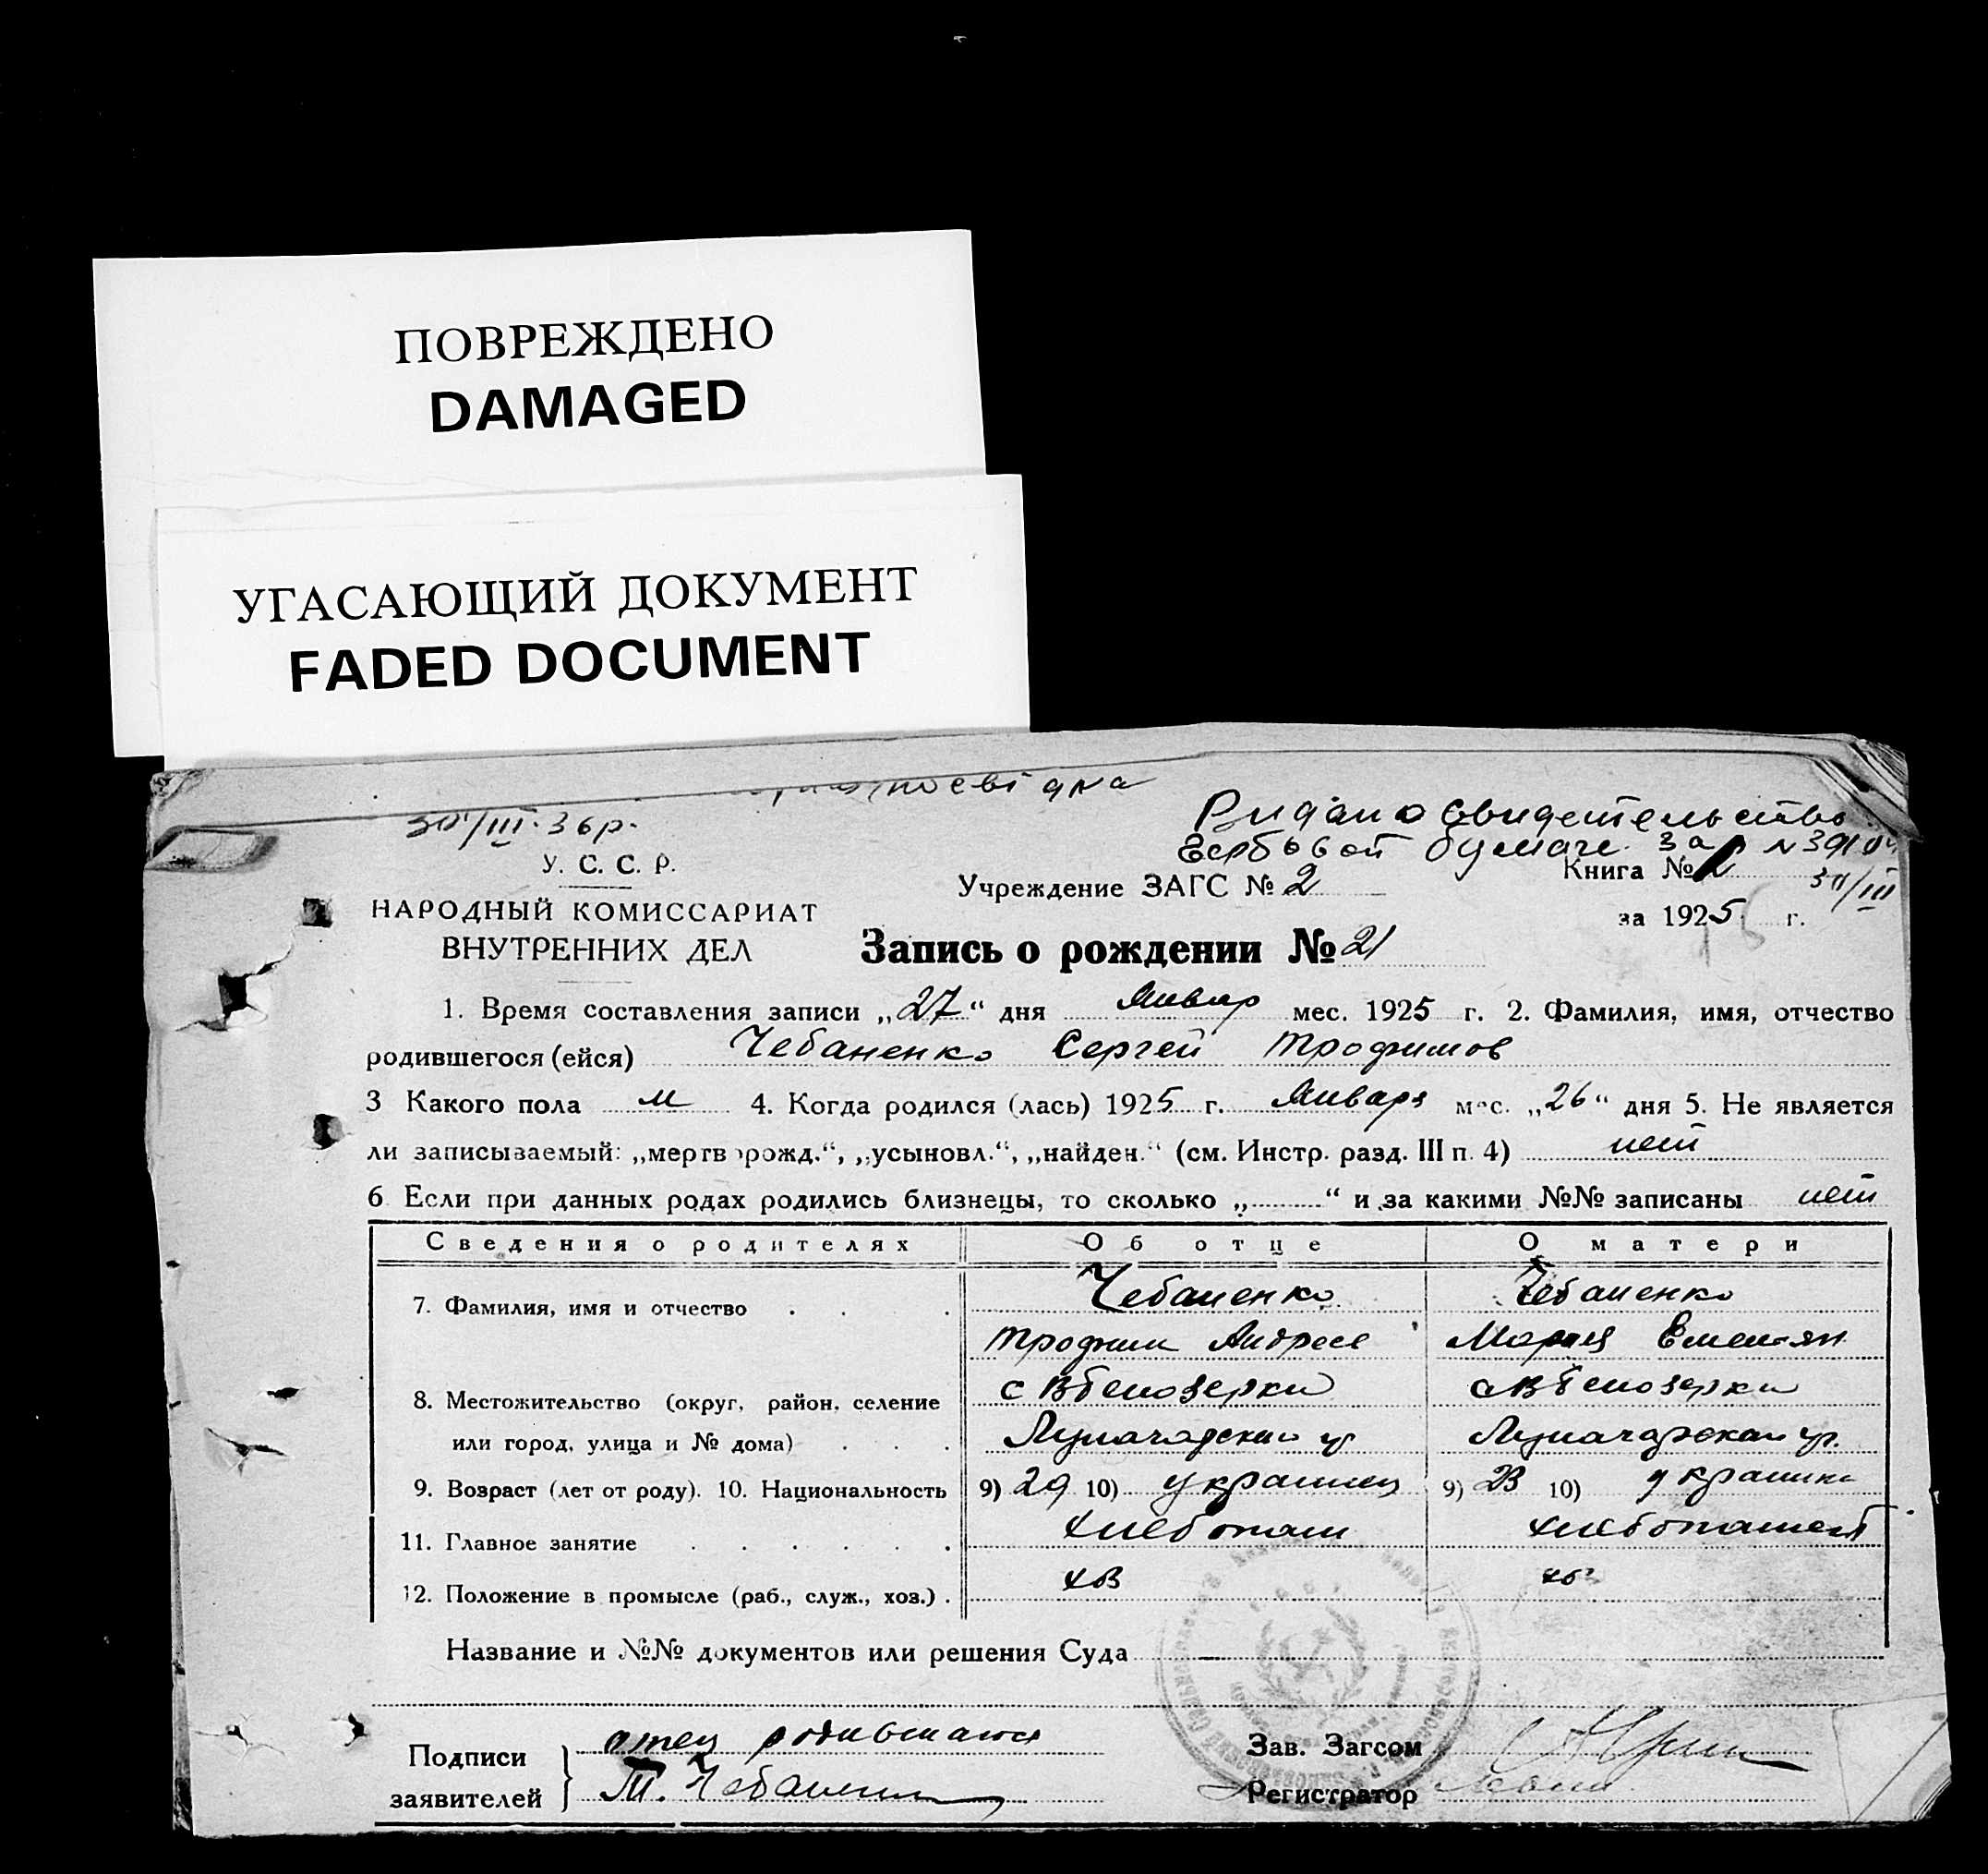 ПОВРЕЖДЕНО
DAMAGED
УГАСАЮЩИЙ ДОКУМЕНТ
FADED DOCUMENT
30/III. 36р.
Видано свидетельство
Гербовой бумаге за
30/III
У. С. С. Р.
Учреждение ЗАГС № 2
Книга №
за 1925 г.
НАРОДНЫЙ КОМИССАРИАТ
ВНУТРЕННИХ ДЕЛ
Запись о рождении № 21
1. Время составления записи „27“ дня Январ мес. 1925 г. 2. Фамилия, имя, отчество
родившегося (ейся) Чебаненко Сергей Трофимов
3 Какого пола м 4. Когда родился (лась) 1925 г. Января мес. „26“ дня 5. Не является
ли записываемый: „мертворожд.“, „усыновл.“, „найден.“ (см. Инстр. разд. III п. 4) нет
6 Если при данных родах родились близнецы, то сколько „..........“ и за какими №№ записаны нет
Сведения о родителях Об отце О матери
7. Фамилия, имя и отчество Чебаненко Чебаненко
Трофим Андрее Мария Емельян
8. Местожительство (округ, район, селение с ВБелозерки с ВБелозерки
или город, улица и № дома) Луначарская ул.
9. Возраст (лет от роду). 10. Национальность 9) 29 10) украинец 9) 23 10) украинка
11. Главное занятие хлебопаш хлебопашест
12. Положение в промысле (раб., служ., хоз.)
Название и №№ документов или решения Суда
отец родившагося
Подписи
заявителей Т. Чебаненко
Зав. Загсом
Регистратор